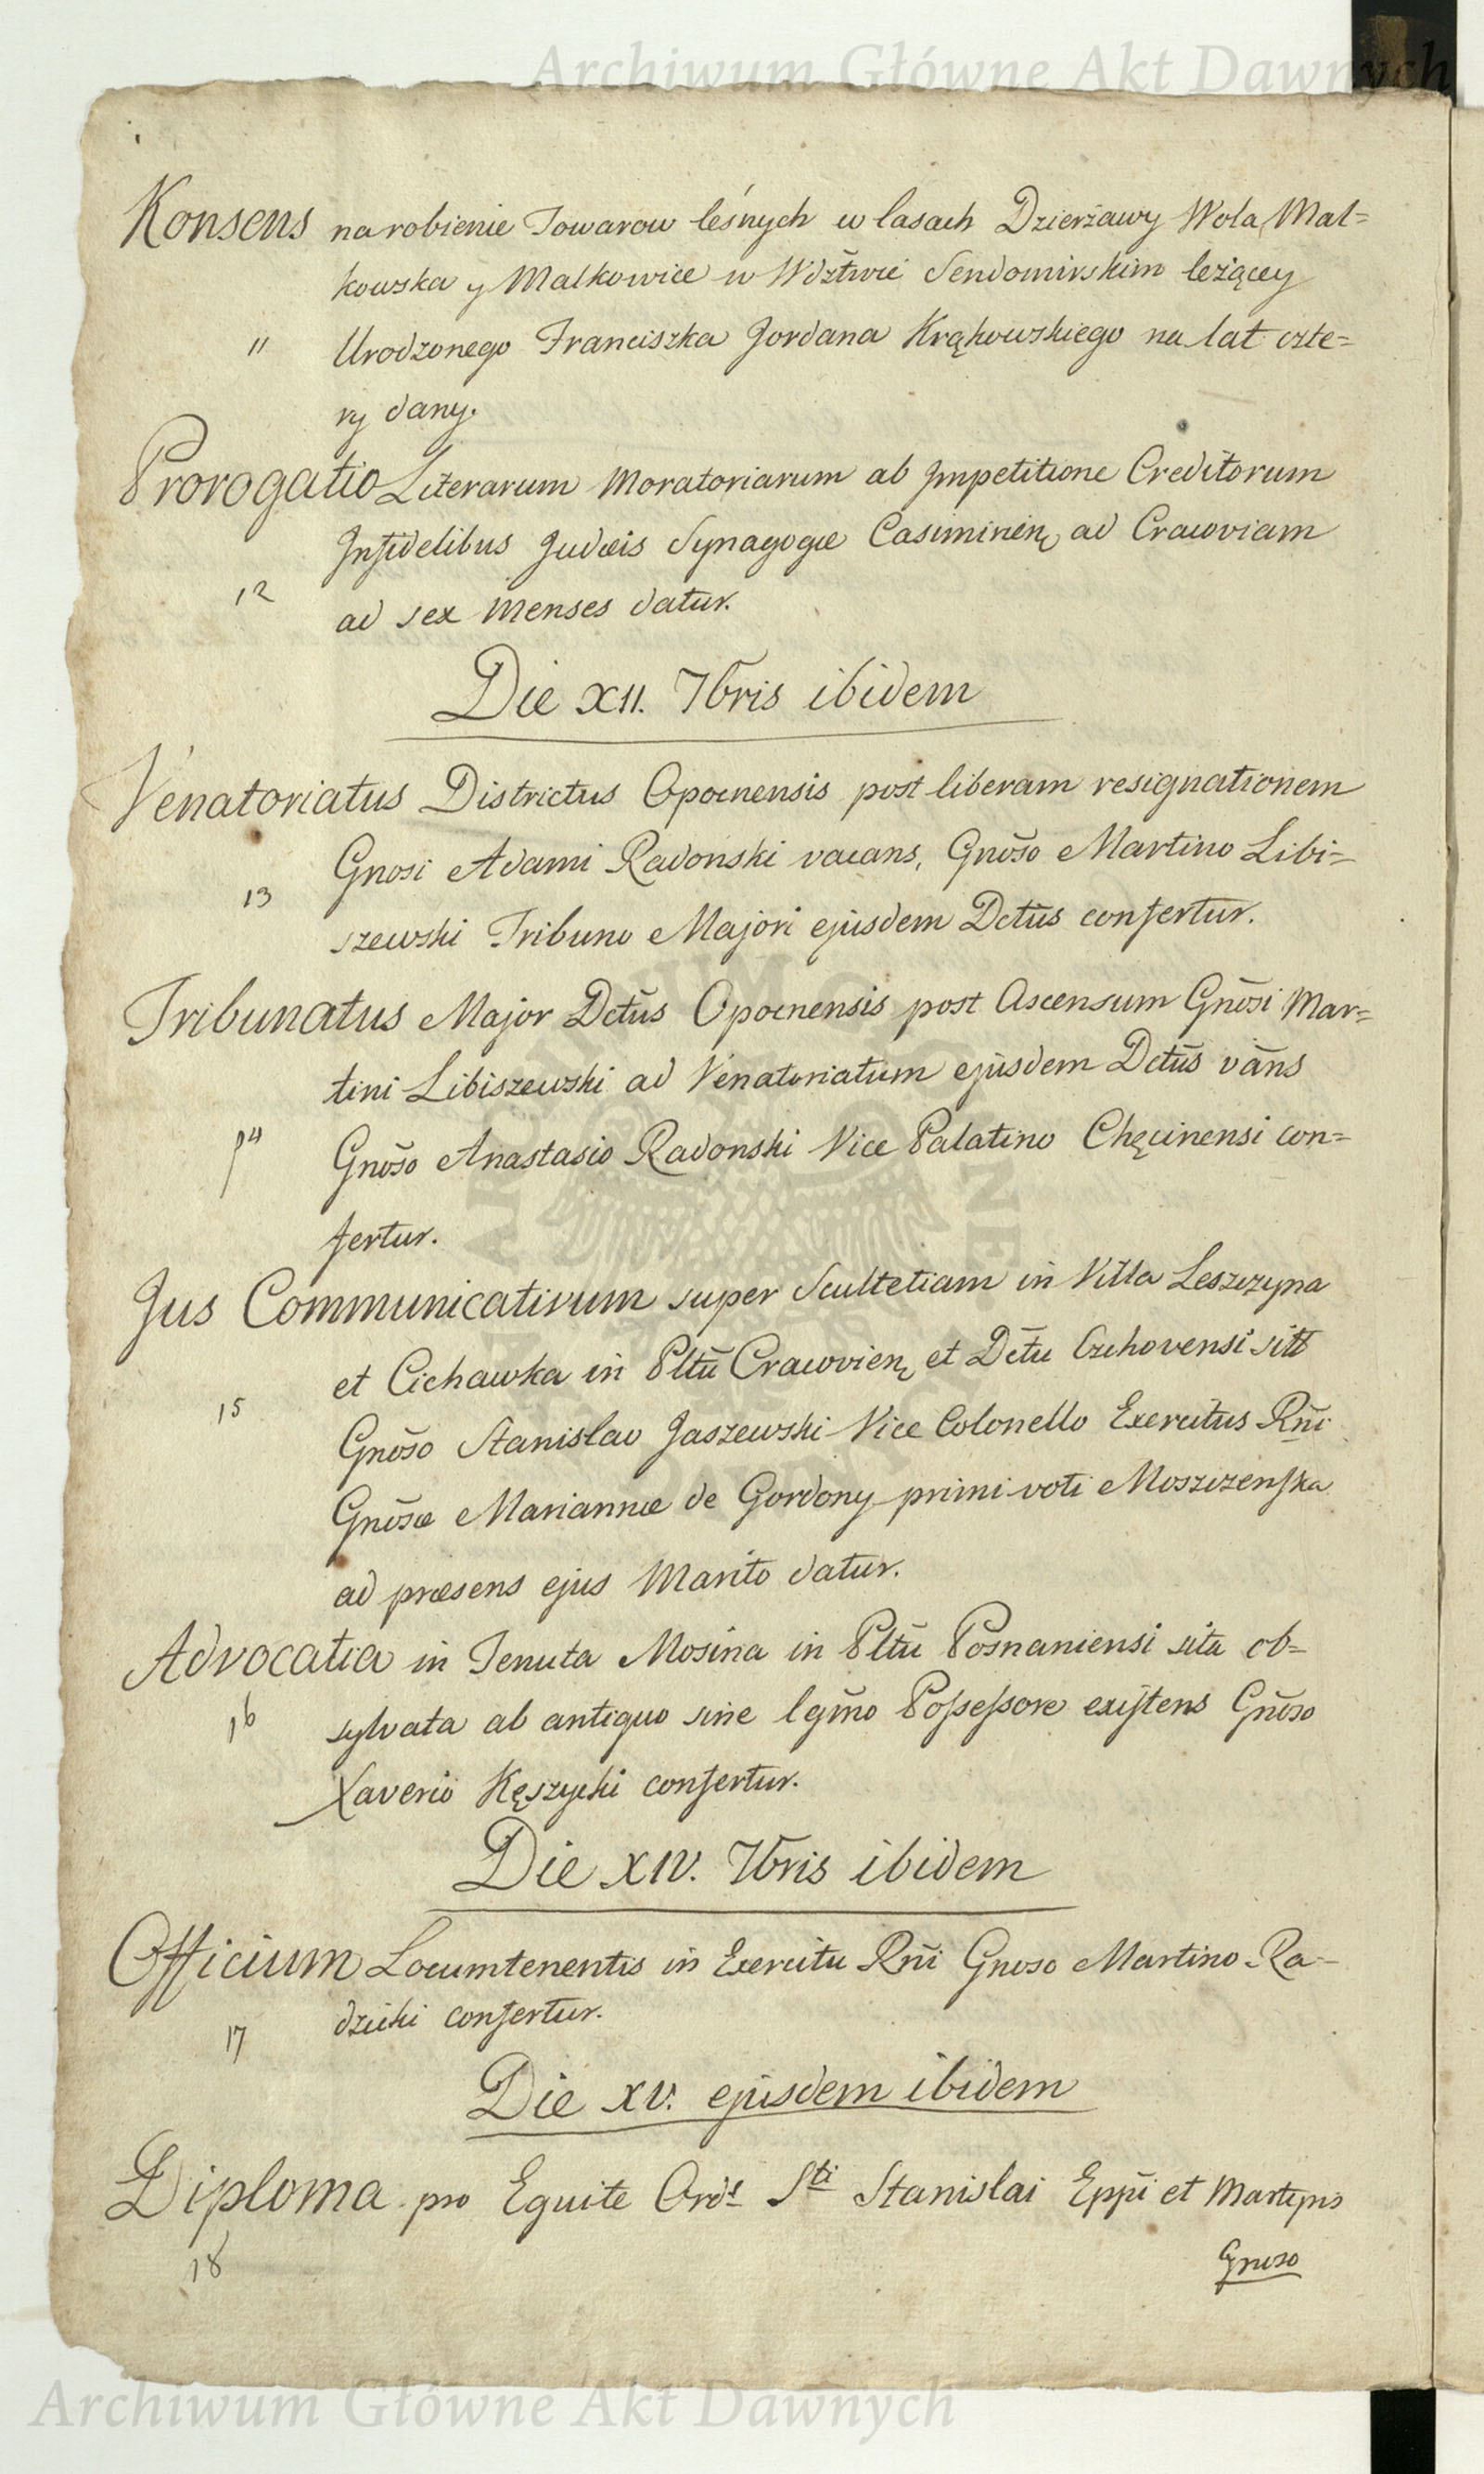 Archiwum Główne Akt Dawnych
Konsens na robienie Towarow leśnych w lasach Dzierżawy Wola Mal=
kowska y Malkowice w Wdztwie Sendomirskim leżącey
11 Urodzonego Franciszka Jordana Krąkowskiego na lat czte=
ry dany.
Prorogatio Literarum Moratoriarum ab Impetitione Creditorum
Infidelibus Judæis Synagogæ Casimirien, ad Cracoviam
12 ad sex Menses datur.
Die XII. 7bris ibidem
Venatoriatus Districtus Opocnensis post liberam resignationem
Gnosi Adami Radonski vacans, Gnõso Martino Libi=
13
szewski Tribuno Majori ejusdem Dctũs confertur.
Tribunatus Major Dctũs Opocnensis post Ascensum Gnõsi Mar=
tini Libiszewski ad Venatoriatum ejusdem Dctũs vãns
14 Gnõso Anastasio Radonski Vice Palatino Chęcinensi con=
fertur.
Jus Communicativum super Scultetiam in Villa Leszczyna
et Cichawka in Pltũ Cracovien, et Dctũ Czchovensi sitt
15
Gnõso Stanislao Jaszewski Vice Colonello Exercitus Rñi
Gnõsæ Mariannæ de Gordony primi voti Moszczenska
ad præsens ejus Marito datur.
Advocatia in Tenuta Mosina in Pltũ Posnaniensi sita ob=
16 sylvata ab antiquo sine lgm̃o Possessore existens Gnõso
Xaverio Kęszycki confertur.
Die XIV. 7bris ibidem
Officium Locumtenentis in Exercitu Rñi Gnoso Martino Ra=
17 dzicki confertur.
Die XV. ejusdem ibidem
Diploma pro Equite Ordˢ Sti Stanislai Eppĩ et Martyris
18
Gnoso
Archiwum Główne Akt Dawnych